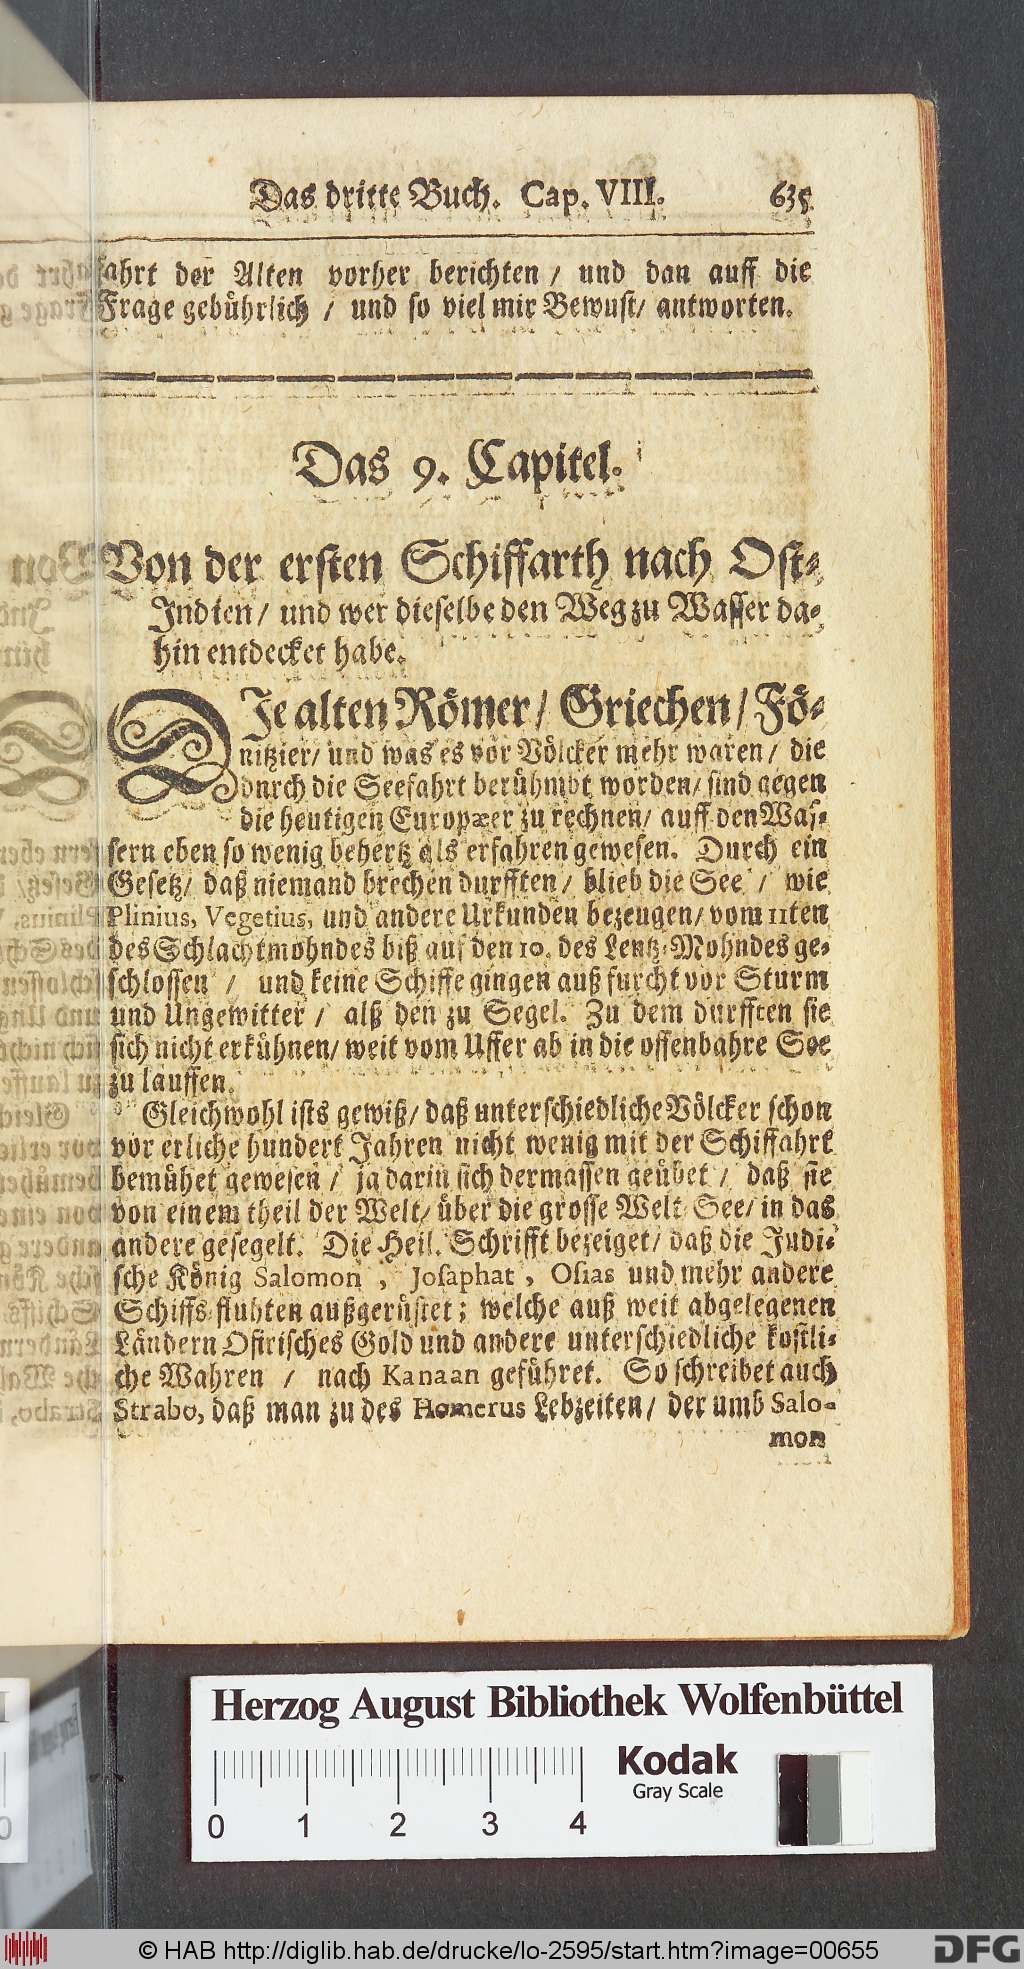 Das dritte Buch. Cap. VIII. 635
fahrt der Alten vorher berichten / und dan auff die
Frage gebührlich / und so viel mir Bewust / antworten.
Das 9. Capitel.
Von der ersten Schiffarth nach Ost-
Indien / und wer dieselbe den Weg zu Wasser da-
hin entdecket habe.
DIe alten Römer / Griechen / Fö-
nitzier / und was es vor Völcker mehr waren / die
durch die Seefahrt berühmbt worden / sind gegen
die heutigen Europæer zu rechnen / auff den Was-
sern eben so wenig behertz als erfahren gewesen. Durch ein
Gesetz / daß niemand brechen durfften / blieb die See / wie
Plinius, Vegetius, und andere Urkunden bezeugen / vom 11ten
des Schlachtmohndes biß auf den 10. des Lentz-Mohndes ge-
schlossen / und keine Schiffe gingen auß furcht vor Sturm
und Ungewitter / alß den zu Segel. Zu dem durfften sie
sich nicht erkühnen / weit vom Uffer ab in die offenbahre See
zu lauffen.
Gleichwohl ists gewiß / daß unterschiedliche Völcker schon
vor erliche hundert Jahren nicht wenig mit der Schiffahrt
bemühet gewesen / ja darin sich dermassen geübet / daß sie
von einem theil der Welt / über die grosse Welt-See / in das
andere gesegelt. Die Heil. Schrifft bezeiget / daß die Judi-
sche König Salomon, Josaphat, Osias und mehr andere
Schiffs-fluhten außgerüstet; welche auß weit abgelegenen
Ländern Ofirisches Gold und andere unterschiedliche kostli-
che Wahren / nach Kanaan geführet. So schreibet auch
Strabo, daß man zu des Homerus Lebzeiten / der umb Salo-
mon
Herzog August Bibliothek Wolfenbüttel
Kodak
Gray Scale
0 1 2 3 4
© HAB http://diglib.hab.de/drucke/lo-2595/start.htm?image=00655
DFG